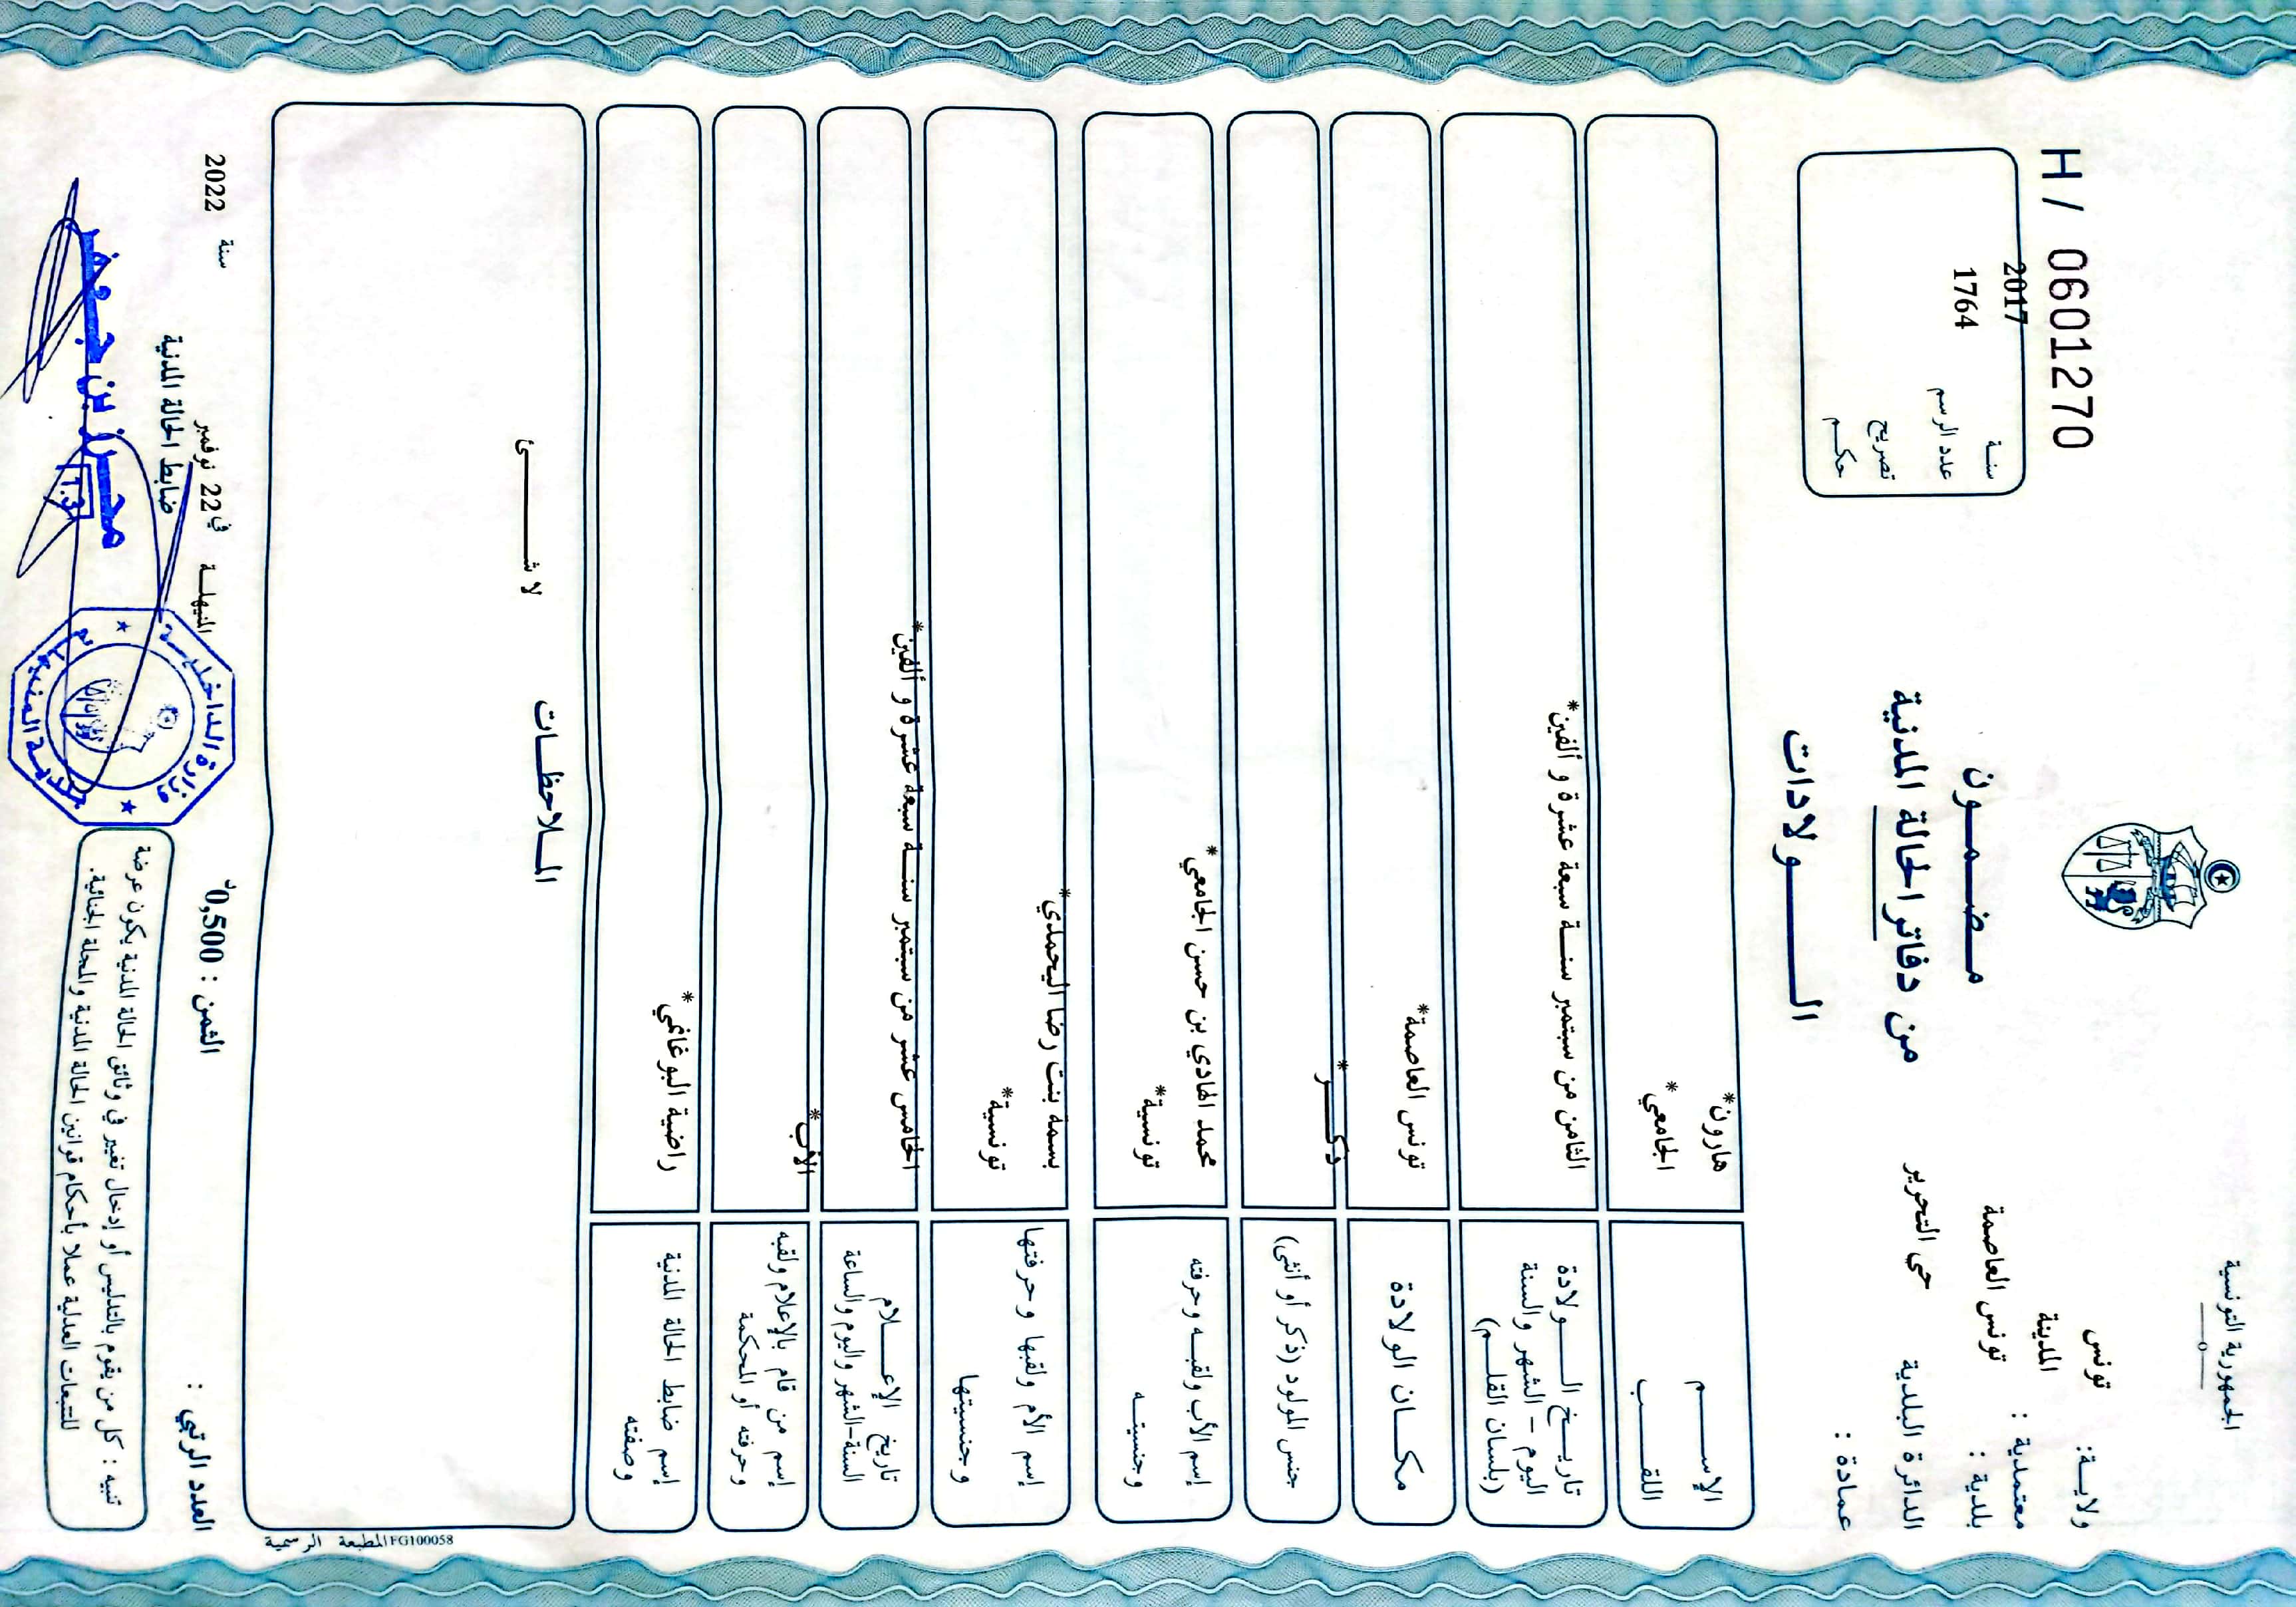 الجمهورية التونسية
ولايـــة: تونس
معتمدية : المدينة
بلدية : تونس العاصمة
الدائرة البلدية حي التحرير
عمادة :
مـــضـــمـــون
من دفاتر الحالة المدنية
الـــــولادات
H / 0601270
سنـة 2017
عدد الرسم 1764
تصريح
حكـم
الإســـم هارون*
اللقـــب الجامعي*
تاريـــخ الـــــولادة
اليوم - الشهر والسنة
(بلسان القلـــم)
الثامن من سبتمبر سنـــة سبعة عشرة و ألفين*
مكـــان الولادة تونس العاصمة*
جنس المولود (ذكر أو أنثى) ذكـــر*
إسم الأب ولقبـــه وحرفته محمد الهادي بن حسن الجامعي*
وجنسيتـــه تونسية*
إسم الأم ولقبها وحرفتها بسمة بنت رضا اليحمدي*
وجنسيتها تونسية*
تاريخ الإعـــلام
السنة-الشهر واليوم والساعة
الخامس عشر من سبتمبر سنـــة سبعة عشرة و ألفين*
إسم من قام بالإعلام ولقبه
وحرفته أو المحكمة
الأب*
إسم ضابط الحالة المدنية
وصفته
راضية البوغانمي*
المـــلاحظـــات
لا شـــــئ
المطبعة الرسمية FG100058
العدد الرقمي :
الثمن : 0,500د
المنيهلـــة في 22 نوفمبر سنة 2022
ضابط الحالة المدنية
محرز بن جـ
وزارة الداخليـــة
تنبيه : كل من يقوم بالتدليس أو إدخال تغيير في وثائق الحالة المدنية يكون عرضة
للتتبعات العدلية عملا بأحكام قوانين الحالة المدنية والمجلة الجنائية.